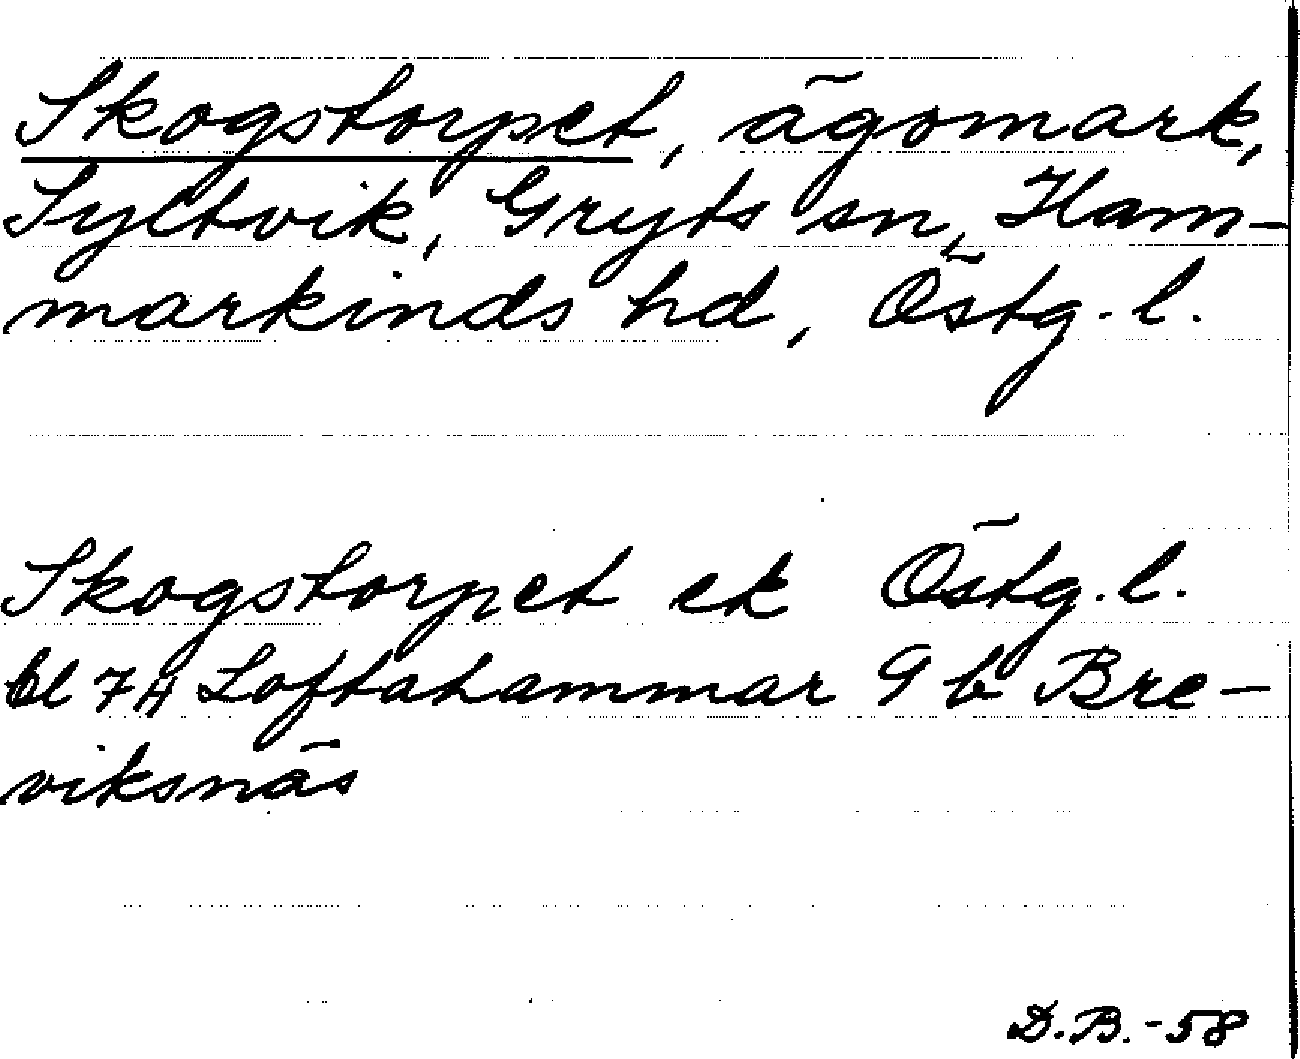 Skogstorpet, ägomark,
Syltvik, Gryts sn, Ham-
markinds hd, Östg. l.
Skogstorpet ek Östg. l.
bl 7H Loftahammar 9 b Bre-
viksnäs
D.B.-58